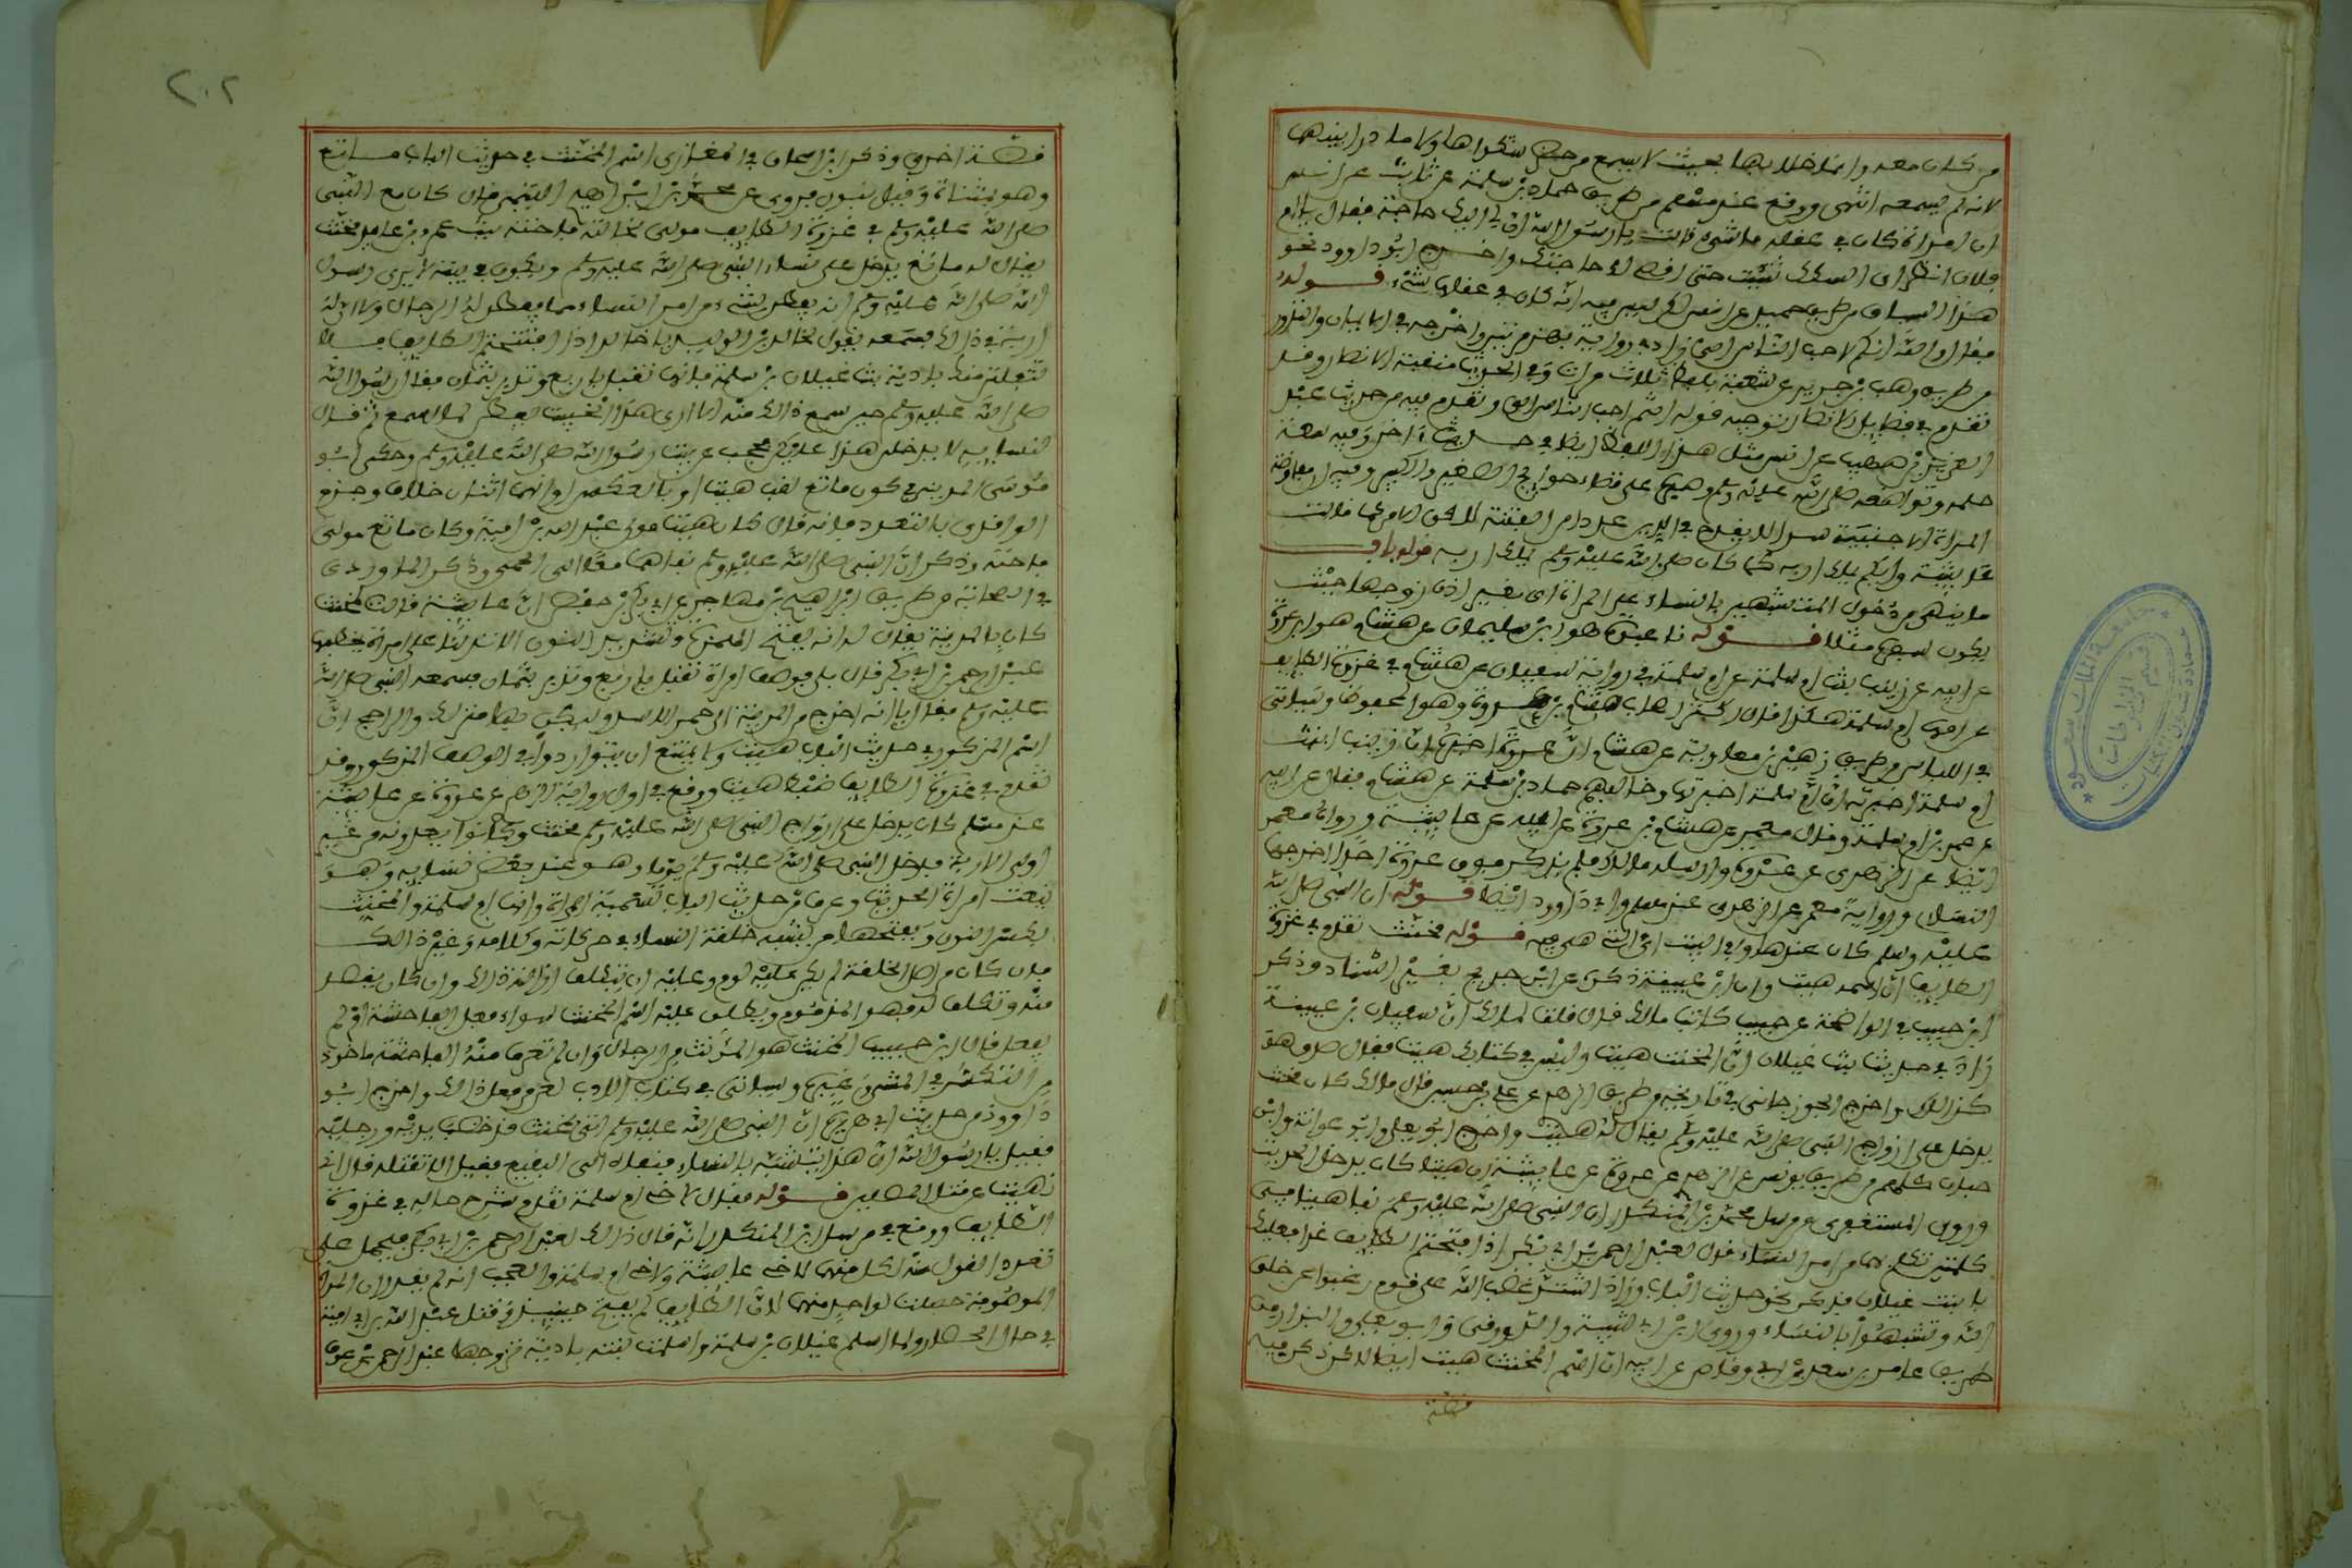 من كان معه وانما خلا بها بحيث لا يسمع من حضر شكواها ولا ما دار بينهما
لانه لم يسمعه انتهى ووقع عند مسلم من طريق حماد بن سلمة عن ثابت عن انس
ان امراة كان في عقلها شيء قالت يا رسول الله ان لي اليك حاجة فقال يا ام
فلان انظري اي السكك شئت حتى اقضي لك حاجتك واخرج ابو داوود نحو
هذا السياق من طريق حميد عن انس لكن ليس فيه انه كان في عقلها شيء قوله
فقال والله انكم لاحب الناس الي زاد في رواية بهز مرتين واخرجه في الايمان والنذور
من طريق وهب بن جرير عن شعبة بلفظ ثلاث مرات وفي الحديث منقبة الانصار وقد
تقدم في فضايل الانصار توجيه قوله انتم احب الناس الي وتقدم فيه من حديث عبد
العزيز بن صهيب عن انس مثل هذا اللفظ ايضا في حديث اخر وفيه سعة
حلمه وتواضعه صلى الله عليه وسلم وصبره على قضاء حوايج الصغير والكبير وفيه ان مفاوضة
المراة الاجنبية سرا لا يقدح في الدين عند امن الفتنة لكن الامر كما قالت
عايشة وايكم يملك اربه كما كان صلى الله عليه وسلم يملك اربه قوله باب
ما ينهى من دخول المتشبهين بالنساء على المراة اي بغير اذن زوجها حيث
يكون مثلا قوله نا عبدة هو ابن سليمان عن هشام هو ابن عروة
عن ابيه عن زينب بنت ام سلمة عن ام سلمة في رواية سفيان عن هشام في غزوة الطايف
عن امها ام سلمة هكذا قال اكثر اصحاب هشام بن عروة وهو المحفوظ وسياتي
في اللباس من طريق زهير بن معاوية عن هشام ان عروة اخبره ان زينب ابنت
ام سلمة اخبرته ان ام سلمة اخبرتها وخالفهم حماد بن سلمة عن هشام فقال عن ابيه
عن عمر بن ابي سلمة وقال معمر عن هشام بن عروة عن ابيه عن عايشة ورواه معمر
ايضا عن الزهري عن عروة وارسله مالك فلم يذكر فوق عروة احدا اخرجها
النساي ورواية معمر عن الزهري عند مسلم وابي داوود ايضا قوله ان النبي صلى الله
عليه وسلم كان عندها وفي البيت اي التي هي فيه قوله مخنث تقدم في غزوة
الطايف ان اسمه هيت وان ابن عيينة ذكره عن ابن جريج بغير اسناد وذكر
ابن حبيب في الواضحة عن حبيب كاتب مالك قال قلت لمالك ان سفيان بن عيينة
زاد في حديث بنت غيلان ان المخنث هيت وليس في كتابك هيت فقال صدق هو
كذلك واخرج الجوزجاني في تاريخه من طريق الزهري عن علي بن حسين قال كان مخنث
يدخل على ازواج النبي صلى الله عليه وسلم يقال له هيت واخرج ابو يعلى وابو عوانة وابن
حبان كلهم من طريق يونس عن الزهري عن عروة عن عايشة ان هيتا كان يدخل الحديث
وروى المستغفري من مرسل محمد بن المنكدر ان النبي صلى الله عليه وسلم نفا هيتا في
كلمتين تكلم بهما من امر النساء قال لعبد الرحمن بن ابي بكر اذا افتتحتم الطايف غدا فعليك
بابنت غيلان فذكر نحو حديث الباب وزاد اشتد غضب الله على قوم رغبوا عن خلق
الله وتشبهوا بالنساء وروى ابن ابي شيبة والدورقي وابو يعلى والبزار من
طريق عامر بن سعد بن ابي وقاص عن ابيه ان اسم المخنث هيت ايضا لكن ذكر فيه
قصة
٢٠٢
قصة اخرى وذكر ابن اسحاق في المغازي ان اسم المخنث في حديث الباب ماتع
وهو بمثناة وقيل بنون فروى عن محمد بن ابراهيم التيمي قال كان مع النبي
صلى الله عليه وسلم في غزوة الطايف مولى لخالته فاختة بنت عمرو بن عايد مخنث
يقال له ماتع يدخل على نساء النبي صلى الله عليه وسلم ويكون في بيته لا يرى رسول
الله صلى الله عليه وسلم انه يفطن لشيء من امر النساء مما يفطن له الرجال ولا ان له
اربة في ذلك فسمعه يقول لخالد بن الوليد يا خالد اذا افتتحتم الطايف فلا
تنفلتن منك بادية بنت غيلان بن سلمة فانها تقبل باربع وتدبر بثمان فقال رسول الله
صلى الله عليه وسلم حين سمع ذلك منه الا ارى هذا الخبيث يفطن لما اسمع ثم قال
لنسايه لا يدخلن هذا عليكن فحجب عن بيت رسول الله صلى الله عليه وسلم وحكى ابو
موسى المديني في كون ماتع لقب هيت او بالعكس او انهما اثنان خلافا وجزم
الواقدي بالتعدد فانه قال كان هيت مولى عبد الله بن ابي امية وكان ماتع مولى
فاختة وذكر ان النبي صلى الله عليه وسلم نفاهما معا الى الحمى وذكر الماوردي
في الصحابة من طريق ابراهيم بن مهاجر عن ابي بكر بن حفص ان عايشة قالت لمخنث
كان بالمدينة يقال له انه بفتح الهمزة وتشديد النون الا تدلنا على امراة نخطبها
عبد الرحمن بن ابي بكر قال بلى فوصف امراة تقبل باربع وتدبر بثمان فسمعه النبي صلى الله
عليه وسلم فقال يا انه اخرج من المدينة الى حمراء الاسد وليكن بها منزلك والراجح ان
اسم المذكور في حديث الباب هيت ولا يمتنع ان يتواردوا في الوصف المذكور وقد
تقدم في غزوة الطايف ضبط هيت ووقع في اول رواية الزهري عن عروة عن عايشة
عند مسلم كان يدخل على ازواج النبي صلى الله عليه وسلم مخنث وكانوا يعدونه من غير
اولي الاربة فدخل النبي صلى الله عليه وسلم يوما وهو عند بعض نسايه وهو
ينعت امراة الحديث وعرف من حديث الباب تسمية المراة وانها ام سلمة والمخنث
بكسر النون وبفتحها من يشبه خلقة النساء في حركاته وكلامه وغير ذالك
فان كان من اصل الخلقة لم يكن عليه لوم وعليه ان يتكلف ازالة ذالك وان كان بقصد
منه وتكلف له فهو المذموم ويطلق عليه اسم المخنث سواء فعل الفاحشة او لم
يفعل قال ابن حبيب المخنث هو المونث من الرجال وان لم تعرف منه الفاحشة ماخوذ
من التكسر في المشي وغيره وسياتي في كتاب الادب لعن من فعل ذالك واخرج ابو
داوود من حديث ابي هريرة ان النبي صلى الله عليه وسلم اتي بمخنث قد خضب يديه ورجليه
فقيل يا رسول الله ان هذا يتشبه بالنساء فنفاه الى النقيع فقيل الا تقتله فقال اني
نهيت عن قتل المصلين قوله فقال لاخي ام سلمة تقدم شرح حاله في غزوة
الطايف ووقع في مرسل ابن المنكدر انه قال ذالك لعبد الرحمن بن ابي بكر فيحمل على
تعدد القول منه لكل منهما لاخي عايشة ولاخي ام سلمة والعجب انه لم يقدر ان المراة
الموصوفة حصلت لواحد منهما لان الطايف لم يفتح حينيذ وقتل عبد الله بن ابي امية
في حال الحصار ولما اسلم غيلان بن سلمة واسلمت بنته بادية تزوجها عبد الرحمن بن عوف